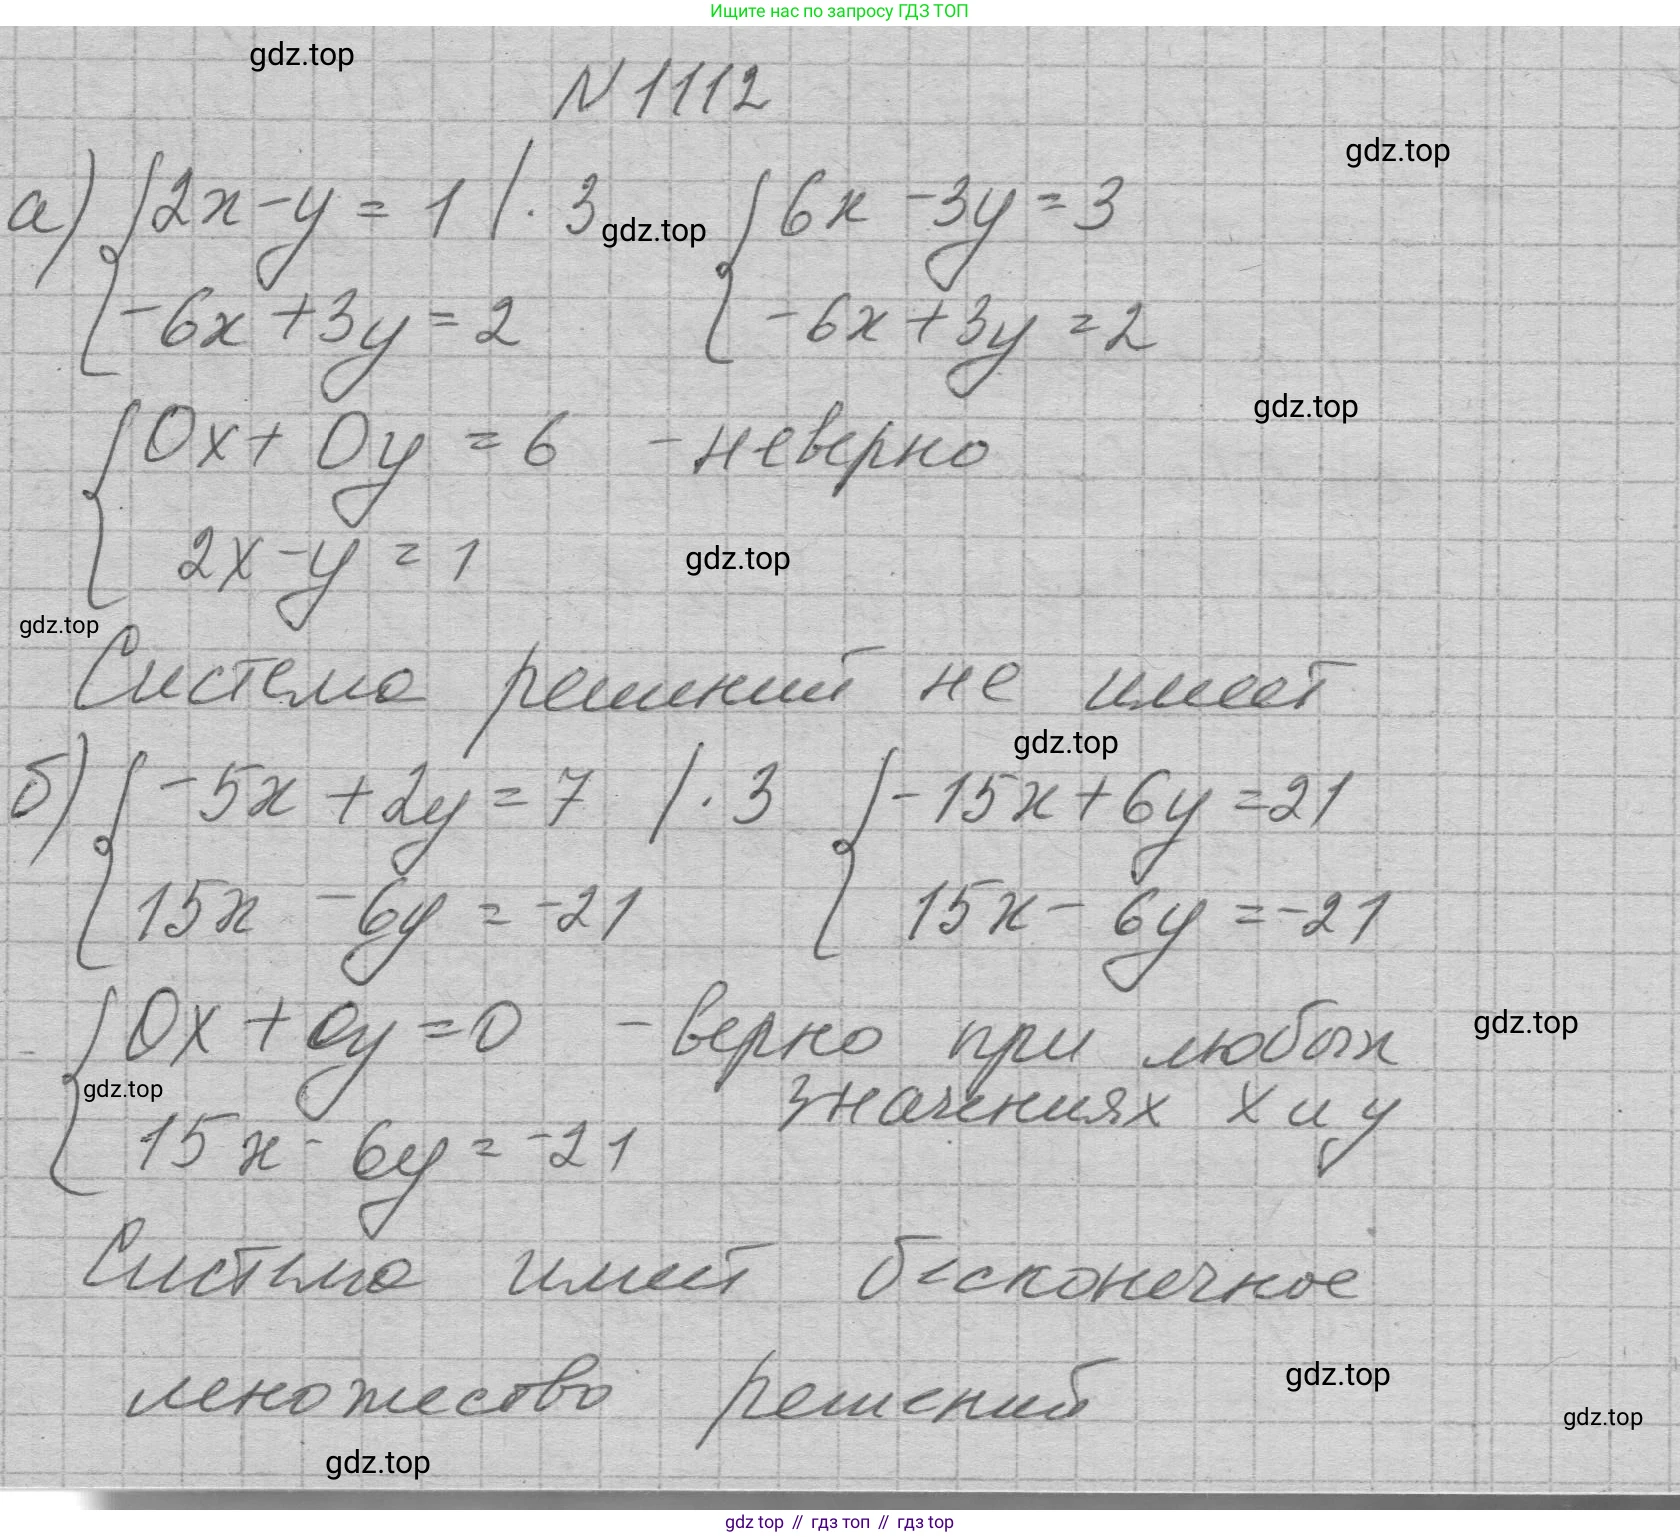 Ищите нас по запросу ГДЗ ТОП
gdz.top
N 1112
gdz.top
а) { 2x - y = 1 | · 3 gdz.top { 6x - 3y = 3
-6x + 3y = 2 -6x + 3y = 2
gdz.top
{ 0x + 0y = 6 - неверно
2x - y = 1
gdz.top
gdz.top
Система решений не имеет
gdz.top
б) { -5x + 2y = 7 | · 3 { -15x + 6y = 21
15x - 6y = -21 15x - 6y = -21
{ 0x + 0y = 0 - верно при любых
gdz.top
gdz.top
значениях x и y
15x - 6y = -21
Система имеет бесконечное
множество решений
gdz.top
gdz.top
gdz.top
gdz top // гдз топ // gdz top